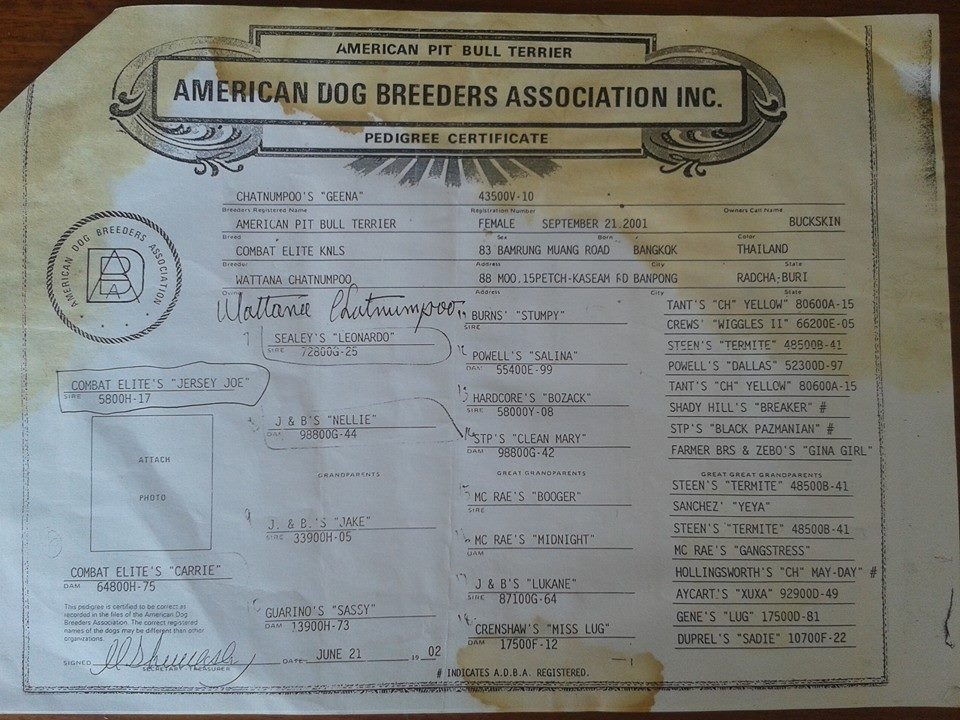 AMERICAN PIT BULL TERRIER
AMERICAN DOG BREEDERS ASSOCIATION INC.
PEDIGREE CERTIFICATE
CHATNUMPOO'S "GEENA" 43500V-10
Breeders Registered Name Registration Number Owners Call Name
AMERICAN PIT BULL TERRIER FEMALE SEPTEMBER 21.2001 BUCKSKIN
Breed Sex Born Color
COMBAT ELITE KNLS 83 BAMRUNG MUANG ROAD BANGKOK THAILAND
Breeder Address City State
WATTANA CHATNUMPOO 88 MOO.15PETCH-KASEAM RD BANPONG RADCHA-BURI
Owner Address City State
Wattanee Chatnumpoo
AMERICAN DOG BREEDERS ASSOCIATION
ADBA
COMBAT ELITE'S "JERSEY JOE"
SIRE 5800H-17
ATTACH
PHOTO
COMBAT ELITE'S "CARRIE"
DAM 64800H-75
SEALEY'S "LEONARDO"
SIRE 72800G-25
J & B'S "NELLIE"
DAM 98800G-44
GRANDPARENTS
J. & B.'S "JAKE"
SIRE 33900H-05
GUARINO'S "SASSY"
DAM 13900H-73
BURNS' "STUMPY"
SIRE
POWELL'S "SALINA"
DAM 55400E-99
HARDCORE'S "BOZACK"
SIRE 58000Y-08
STP'S "CLEAN MARY"
DAM 98800G-42
GREAT GRANDPARENTS
MC RAE'S "BOOGER"
SIRE
MC RAE'S "MIDNIGHT"
DAM
J & B'S "LUKANE"
SIRE 87100G-64
CRENSHAW'S "MISS LUG"
DAM 17500F-12
TANT'S "CH" YELLOW" 80600A-15
CREWS' "WIGGLES II" 66200E-05
STEEN'S "TERMITE" 48500B-41
POWELL'S "DALLAS" 52300D-97
TANT'S "CH" YELLOW" 80600A-15
SHADY HILL'S "BREAKER" #
STP'S "BLACK PAZMANIAN" #
FARMER BRS & ZEBO'S "GINA GIRL"
GREAT GREAT GRANDPARENTS
STEEN'S "TERMITE" 48500B-41
SANCHEZ' "YEYA"
STEEN'S "TERMITE" 48500B-41
MC RAE'S "GANGSTRESS"
HOLLINGSWORTH'S "CH" MAY-DAY" #
AYCART'S "XUXA" 92900D-49
GENE'S "LUG" 17500D-81
DUPREL'S "SADIE" 10700F-22
This pedigree is certified to be correct as
recorded in the files of the American Dog
Breeders Association. The correct registered
names of the dogs may be different than other
organizations.
SIGNED SECRETARY TREASURER DATE JUNE 21 19 02
# INDICATES A.D.B.A. REGISTERED.